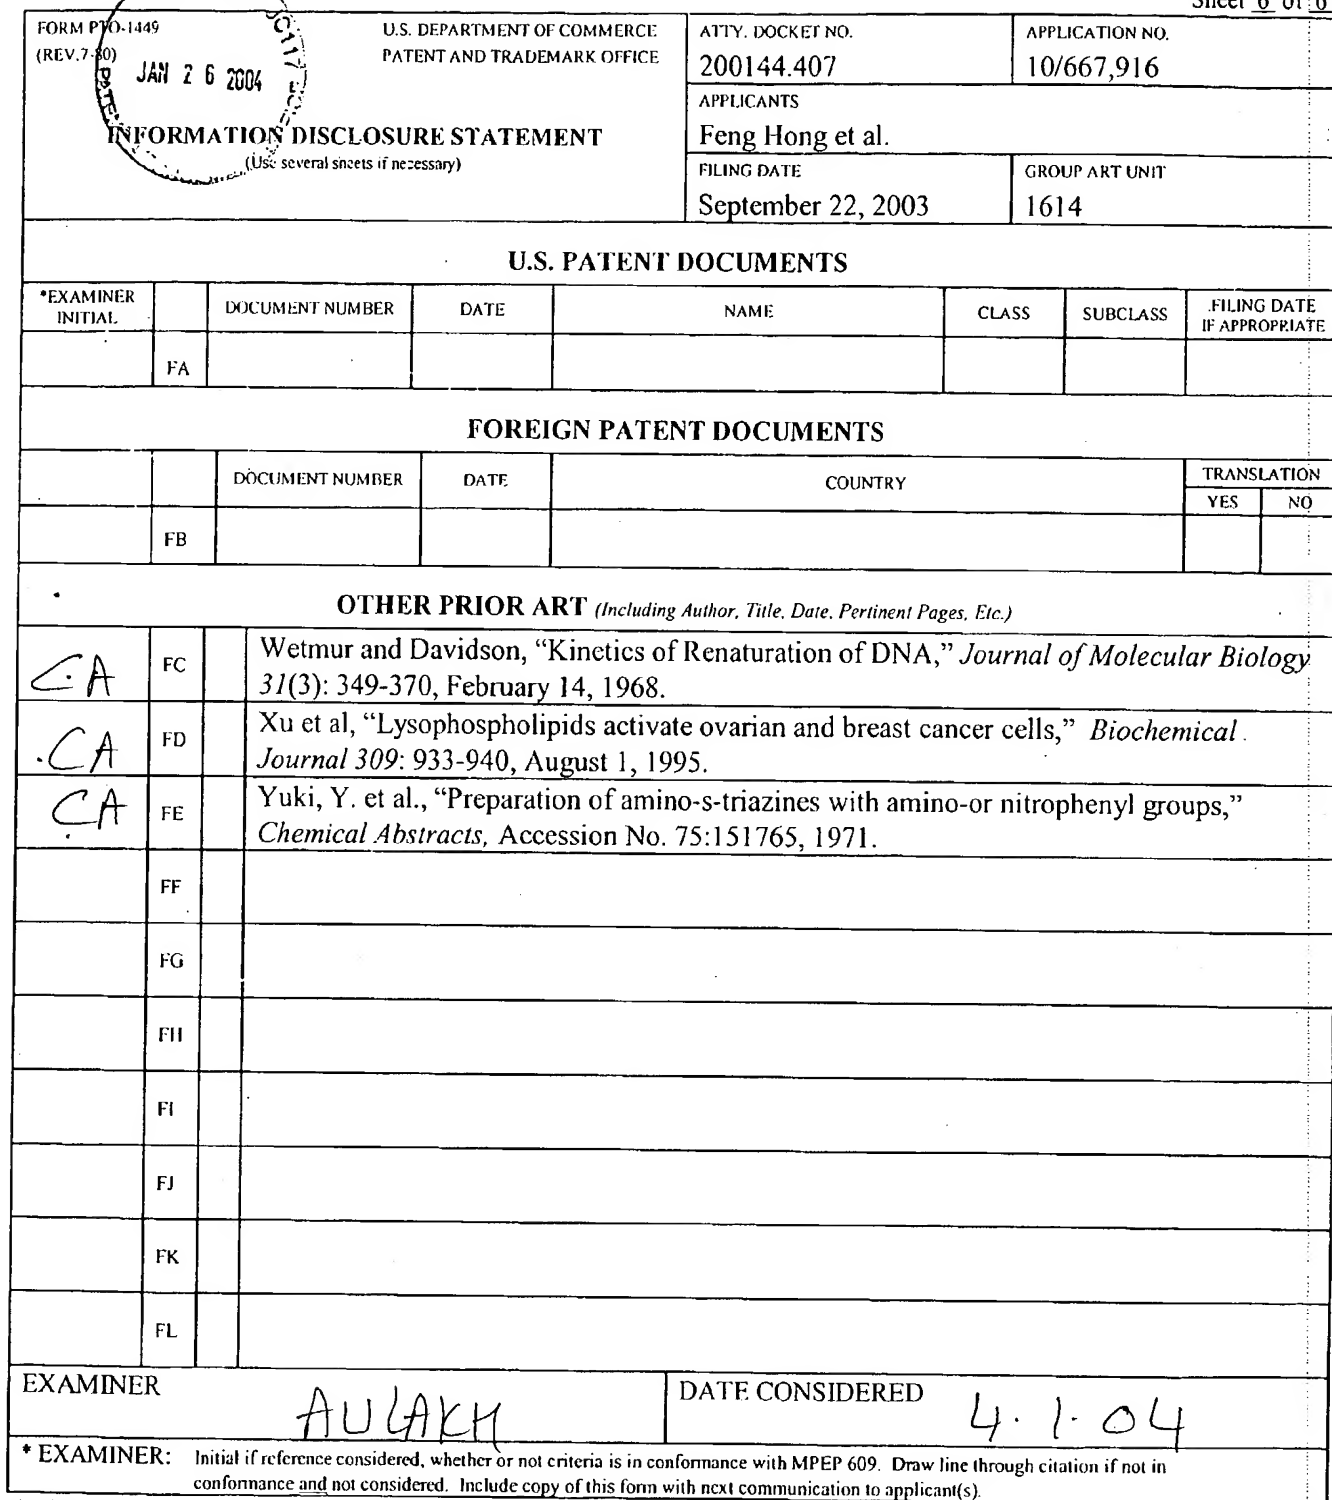 Sheet 6 of 6
FORM PTO-1449
(REV.7-80)
U.S. DEPARTMENT OF COMMERCE
PATENT AND TRADEMARK OFFICE
JAN 26 2004
INFORMATION DISCLOSURE STATEMENT
(Use several sheets if necessary)
ATTY. DOCKET NO.
200144.407
APPLICATION NO.
10/667,916
APPLICANTS
Feng Hong et al.
FILING DATE
September 22, 2003
GROUP ART UNIT
1614
U.S. PATENT DOCUMENTS
*EXAMINER INITIAL DOCUMENT NUMBER DATE NAME CLASS SUBCLASS FILING DATE IF APPROPRIATE
FA
FOREIGN PATENT DOCUMENTS
DOCUMENT NUMBER DATE COUNTRY TRANSLATION
YES NO
FB
OTHER PRIOR ART (Including Author, Title, Date, Pertinent Pages, Etc.)
C.A FC Wetmur and Davidson, “Kinetics of Renaturation of DNA,” Journal of Molecular Biology
31(3): 349-370, February 14, 1968.
CA FD Xu et al, “Lysophospholipids activate ovarian and breast cancer cells,” Biochemical
Journal 309: 933-940, August 1, 1995.
CA FE Yuki, Y. et al., “Preparation of amino-s-triazines with amino-or nitrophenyl groups,”
Chemical Abstracts, Accession No. 75:151765, 1971.
FF
FG
FH
FI
FJ
FK
FL
EXAMINER AULAKH
DATE CONSIDERED 4.1.04
* EXAMINER: Initial if reference considered, whether or not criteria is in conformance with MPEP 609. Draw line through citation if not in
conformance and not considered. Include copy of this form with next communication to applicant(s).